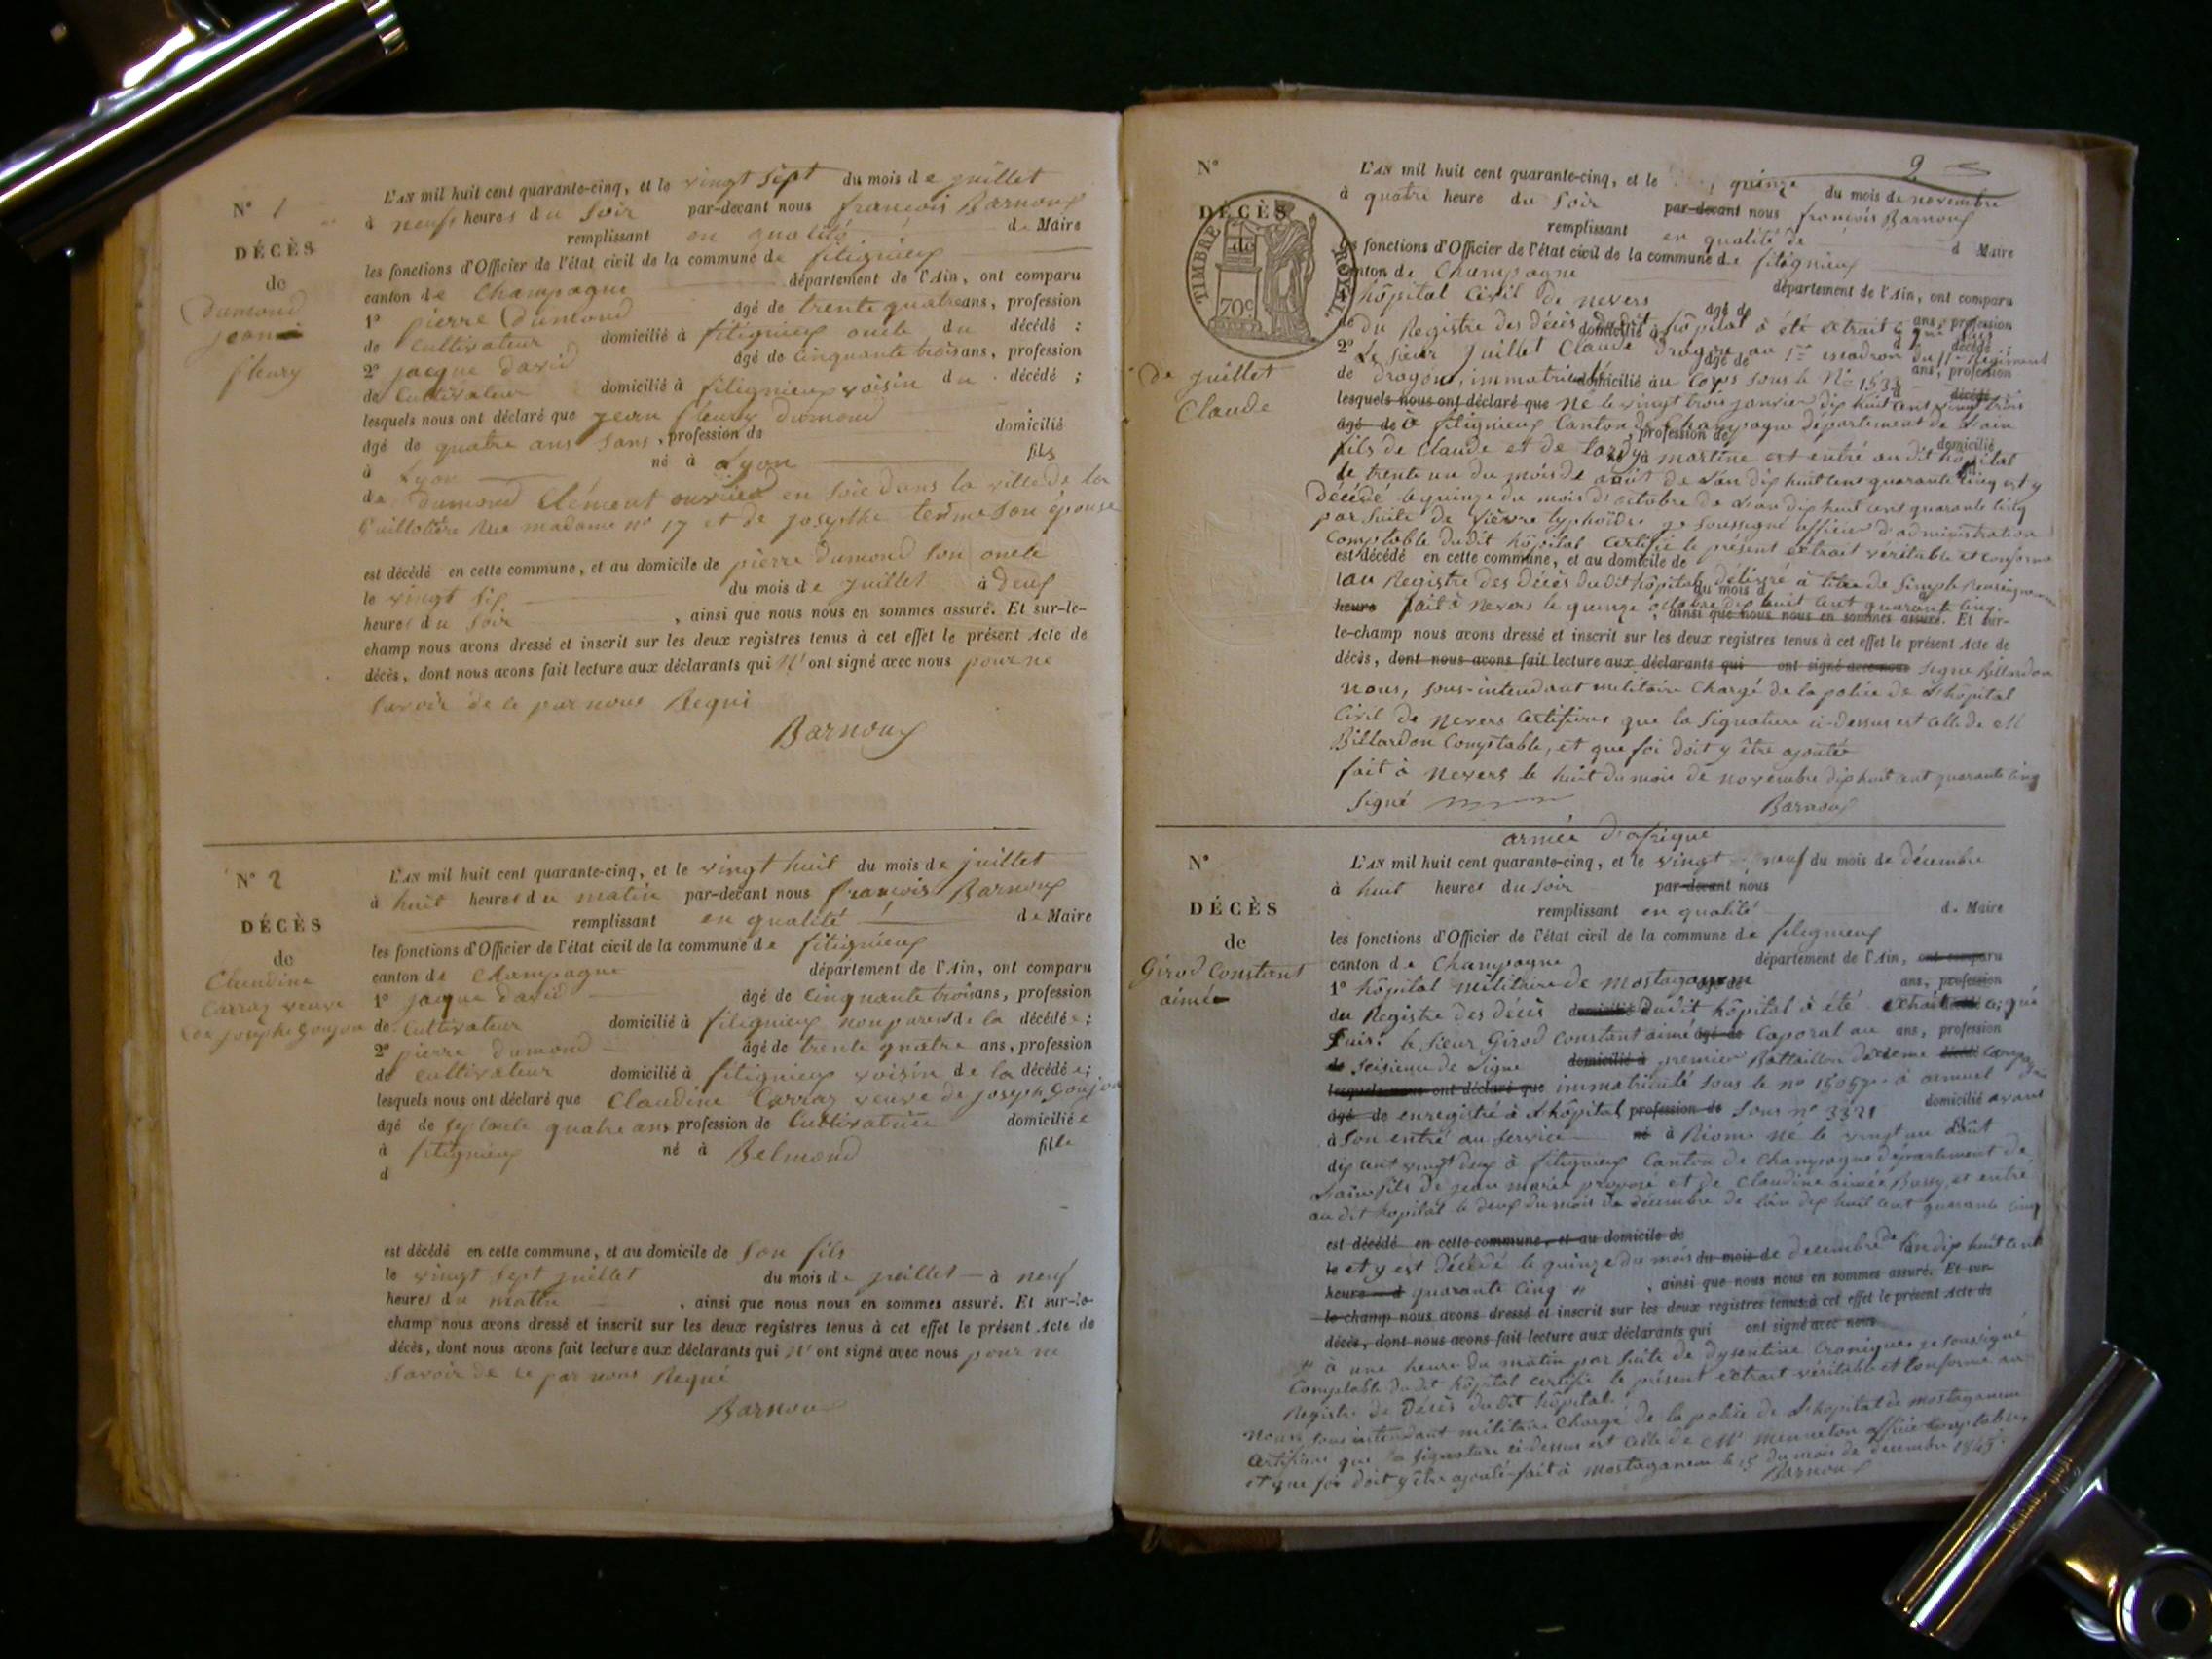 N° 1
DÉCÈS
de
Dumond
jean
fleury
L'AN mil huit cent quarante-cinq, et le vingt sept du mois de juillet
à neuf heures du soir par-devant nous françois Barnoux
remplissant en qualité de Maire
les fonctions d'Officier de l'état civil de la commune de fitignieux
canton de Champagne département de l'Ain, ont comparu
1° pierre Dumond âgé de trente quatre ans, profession
de Cultivateur domicilié à fitignieux oncle du décédé ;
2° jacque david âgé de cinquante trois ans, profession
de Cultivateur domicilié à fitignieux voisin du décédé ;
lesquels nous ont déclaré que jean fleury dumond
âgé de quatre ans sans, profession de domicilié
à Lyon né à Lyon fils
de Dumond Clément ouvrier en soie dans la ville de la
Guillotière Rue madame n° 17 et de josephe terme son épouse
est décédé en cette commune, et au domicile de pierre dumond son oncle
le vingt six du mois de juillet à deux
heures du soir , ainsi que nous nous en sommes assuré. Et sur-le-
champ nous avons dressé et inscrit sur les deux registres tenus à cet effet le présent Acte de
décès, dont nous avons fait lecture aux déclarants qui N' ont signé avec nous pour ne
savoir de ce par nous Requi
Barnoux
N° 2
DÉCÈS
de
Claudine
Carraz veuve
de josephe Goujon
L'AN mil huit cent quarante-cinq, et le vingt huit du mois de juillet
à huit heures du matin par-devant nous françois Barnoux
remplissant en qualité de Maire
les fonctions d'Officier de l'état civil de la commune de fitignieux
canton de Champagne département de l'Ain, ont comparu
1° jacque david âgé de cinquante trois ans, profession
de Cultivateur domicilié à fitignieux non parent de la décédée ;
2° pierre dumond âgé de trente quatre ans, profession
de cultivateur domicilié à fitignieux voisin de la décédée ;
lesquels nous ont déclaré que Claudine Carraz veuve de joseph Goujon
âgé de septante quatre ans profession de Cultivatrice domiciliée
à fitignieux né à Belmond fille
d
est décédé en cette commune, et au domicile de son fils
le vingt sept juillet du mois de juillet à neuf
heures du matin , ainsi que nous nous en sommes assuré. Et sur-le-
champ nous avons dressé et inscrit sur les deux registres tenus à cet effet le présent Acte de
décès, dont nous avons fait lecture aux déclarants qui N' ont signé avec nous pour ne
savoir de ce par nous Requi
Barnoux
2
N°
DÉCÈS
de
TIMBRE ROYAL
70c
de juillet
Claude
L'AN mil huit cent quarante-cinq, et le quinze du mois de novembre
à quatre heure du soir par-devant nous françois Barnoux
remplissant en qualité de d Maire
les fonctions d'Officier de l'état civil de la commune de fitignieux
canton de Champagne département de l'Ain, ont comparu
hôpital Civil de nevers âgé de ans, profession
de du Registre des décès dudit hôpital à été extrait ce qui suit domicilié à décédé ;
2° Le sieur juillet Claude Dragon au 1er escadron du 11e Regiment âgé de ans, profession
de dragons, immatriculé au Corps sous le N° domicilié à décédé
lesquels nous ont déclaré que Né le vingt trois janvier dix huit cent vingt trois
âgé de à fitignieux Canton de Champagne département de l'ain profession de
fils de Claude et de tardy martine est entré au dit hôpital domicilié
le trente un du mois de août de l'an dix huit cent quarante cinq est y
Décédé le quinze du mois d'octobre de l'an dix huit cent quarante cinq
par suite de fièvre typhoïde. je soussigné officier d'administration
Comptable dudit hôpital certifie le présent extrait véritable et conforme
est décédé en cette commune, et au domicile de
au Registre des Décès du dit hôpital délivré à titre de simple Renseignement du mois d
heure fait à Nevers le quinze octobre dix huit cent quarante cinq. , ainsi que nous nous en sommes assuré. Et sur-
le-champ nous avons dressé et inscrit sur les deux registres tenus à cet effet le présent Acte de
décès, dont nous avons fait lecture aux déclarants qui ont signé avec nous signé Billardon
Nous, sous-intendant militaire Chargé de la police de l'hôpital
Civil de nevers Certifions que la signature ci-dessus est celle de M
Billardon Comptable, et que foi doit y être ajoutée
fait à nevers le huit du mois de novembre dix huit cent quarante cinq
signé Barnoux
armée d'afrique
N°
DÉCÈS
de
Girod Constant
aimé
L'AN mil huit cent quarante-cinq, et le vingt neuf du mois de décembre
à huit heures du soir par-devant nous
remplissant en qualité de Maire
les fonctions d'Officier de l'état civil de la commune de fitignieux
canton de Champagne département de l'Ain, ont comparu
1° hôpital militaire de mostaganem âgé de ans, profession
du Registre des décès domicilié dudit hôpital à été extrait ce qui
suit. le sieur Girod Constant aimé âgé de Caporal au ans, profession
de seisieme de Ligne domicilié à premier Battaillon
lesquels nous ont déclaré que immatriculé sous le n° 15057
âgé de enregistré à l'hôpital profession de sous n° 3321 domicilié avant
à son entré au service né à Riom Né le vingt un août
dix cent vingt deux à fitignieux Canton de Champagne département de
l'ain fils de jean marie et de Claudine aimée Bussy, est entré
au dit hopital le deux du mois de décembre de l'an dix huit cent quarante cinq
est décédé en cette commune, et au domicile de
le et y est Décédé le quinze du mois du mois de decembre de l'an dix huit cent
heure d quarante cinq , ainsi que nous nous en sommes assuré. Et sur-
le-champ nous avons dressé et inscrit sur les deux registres tenus à cet effet le présent Acte de
décès, dont nous avons fait lecture aux déclarants qui ont signé avec nous
à une heure du matin par suite de dysentrie Croniques je soussigné
Comptable du dit hôpital certifie le présent extrait véritable et conforme au
Registre de Décès du dit hôpital.
Nous sous intendant militaire Chargé de la police de l'hopital de mostaganem
Certifions que la signature ci-dessus est celle de Mr menneton officier Comptable,
et que foi doit y être ajouté fait à mostaganem le 15 du mois de decembre 1845.
Barnoux